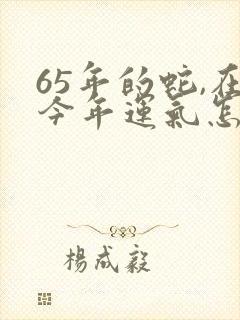 65年的蛇,在
今年運氣怎
楊成毅